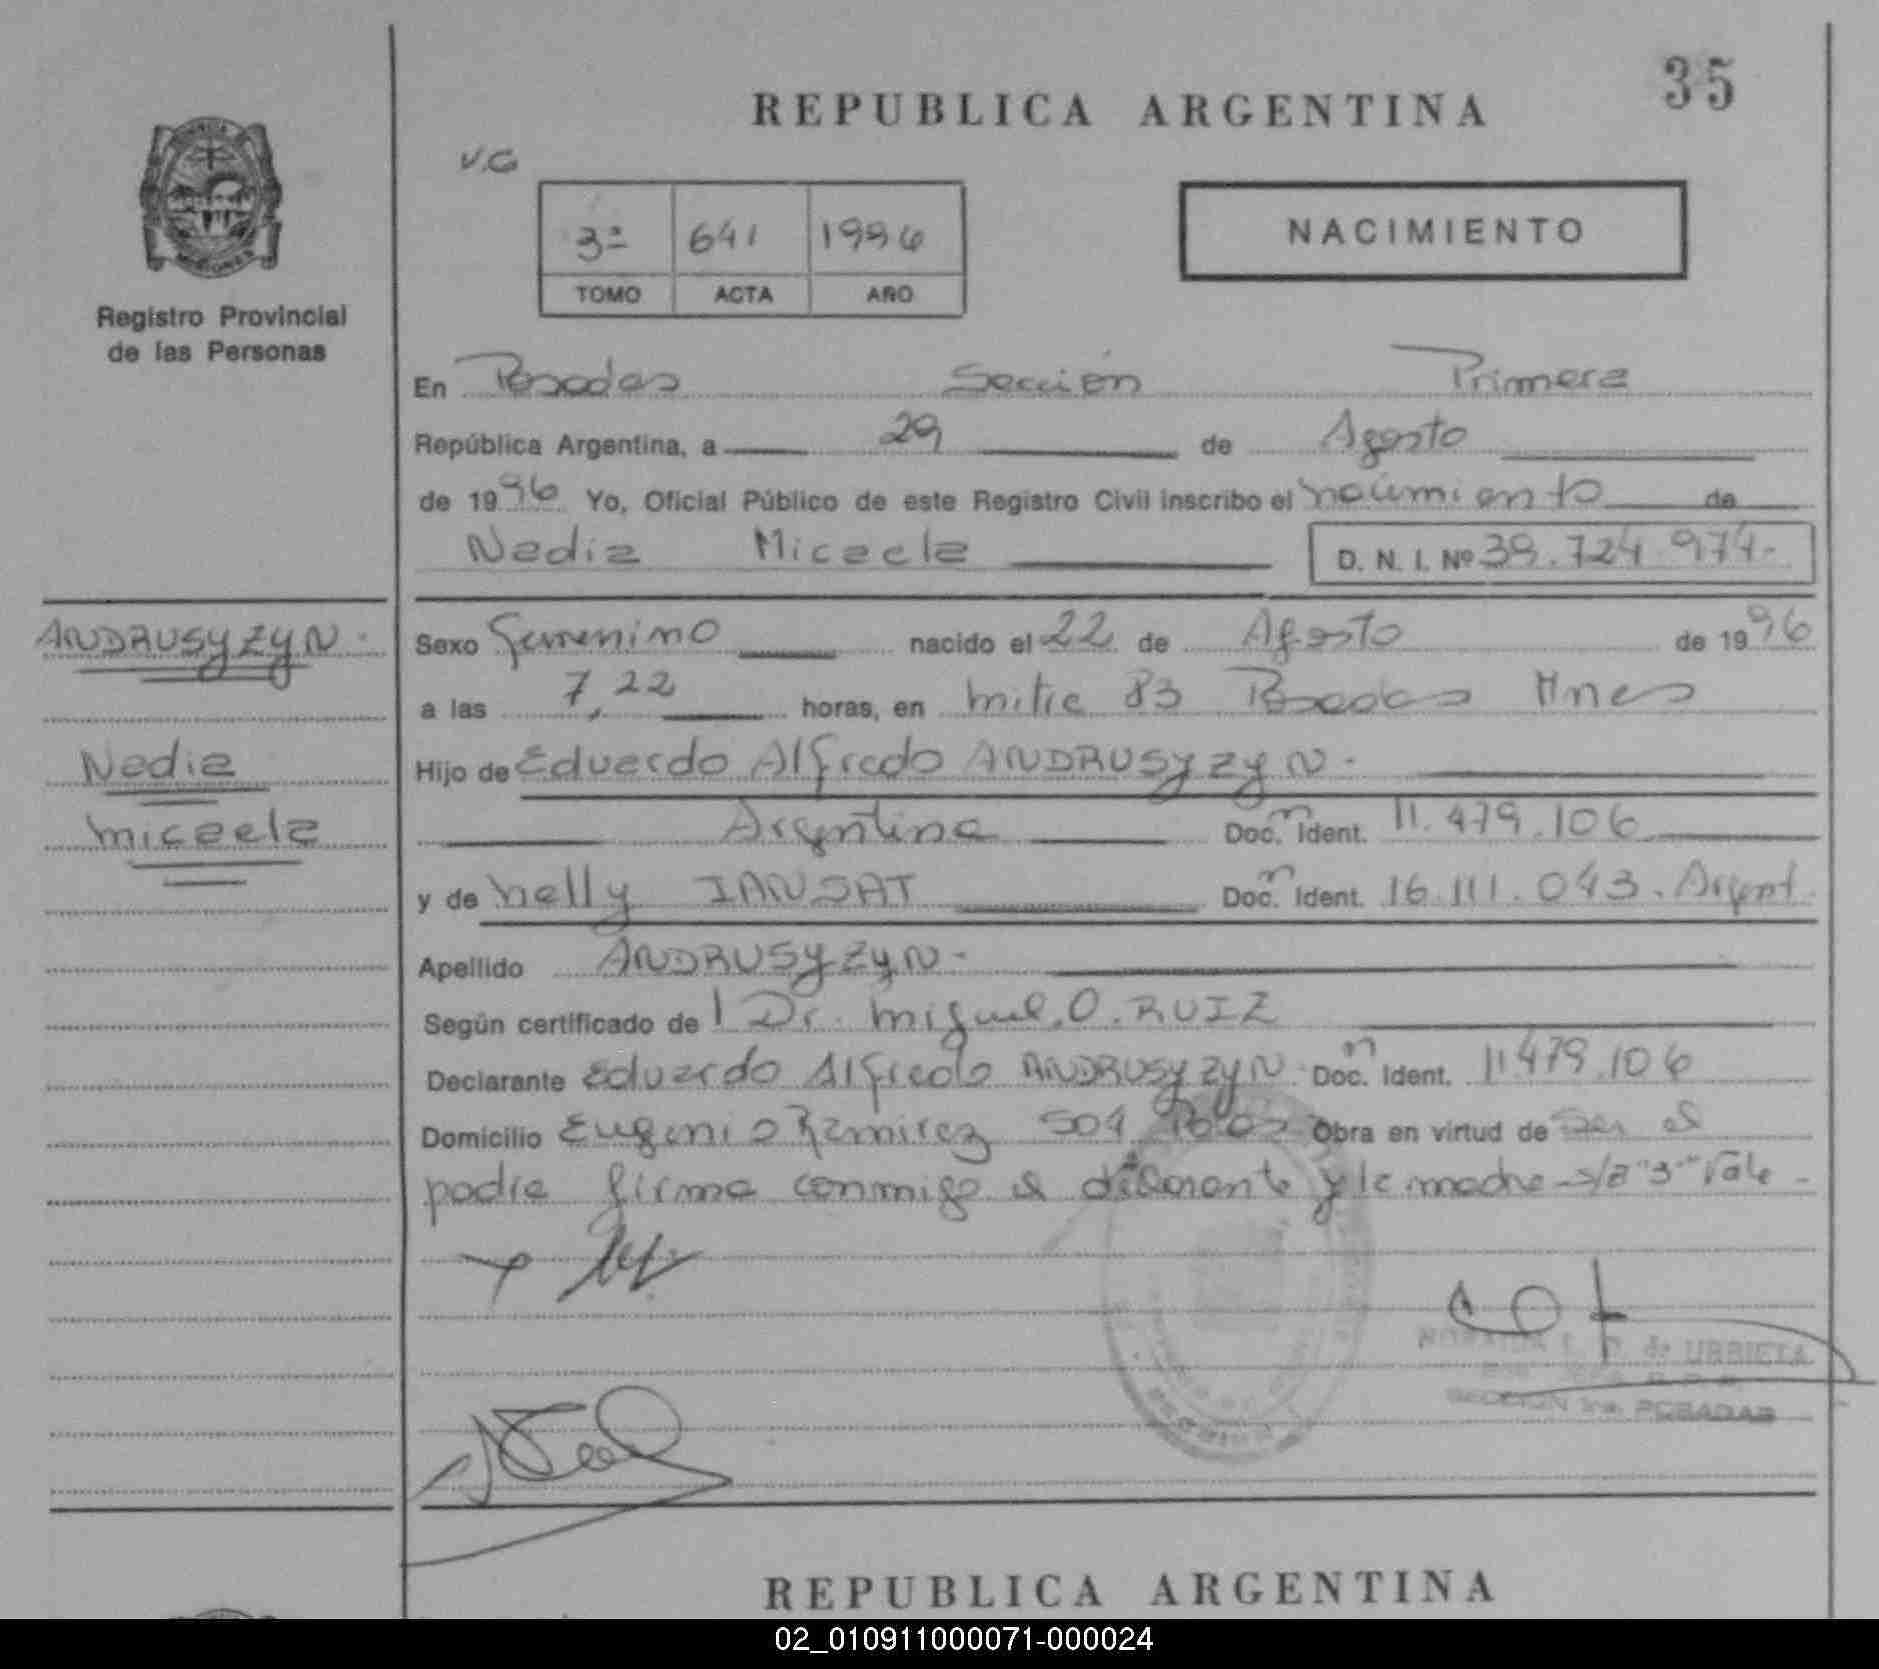 35
REPUBLICA ARGENTINA
V.G
3ª 641 1996
TOMO ACTA AÑO
NACIMIENTO
MISIONES
Registro Provincial
de las Personas
En Posadas Sección Primera
República Argentina, a 29 de Agosto
de 1996 Yo, Oficial Público de este Registro Civil inscribo el nacimiento de
Nadia Micaela D. N. I. Nº 39.724 974-
ANDRUSYZYN.
Nadia
Micaela
Sexo Femenino nacido el 22 de Agosto de 1996
a las 7,22 horas, en Mitre 83 Posadas Mnes
Hijo de Eduardo Alfredo ANDRUSYZYN.
Argentina Doc. Ident. 11.479.106
y de Nelly IANSAT Doc. Ident. 16.111.043. Argent.
Apellido ANDRUSYZYN.
Según certificado de l Dr. Miguel.O.RUIZ
Declarante Eduardo Alfredo ANDRUSYZYN. Doc. Ident. 11.479.106
Domicilio Eugenio Ramirez 504 Obra en virtud de ser el
padre firma conmigo el declarante y la madre - s/a "3" Vale -
de URRIETA
SECCION 1ra. POSADAS
REPUBLICA ARGENTINA
02_010911000071-000024